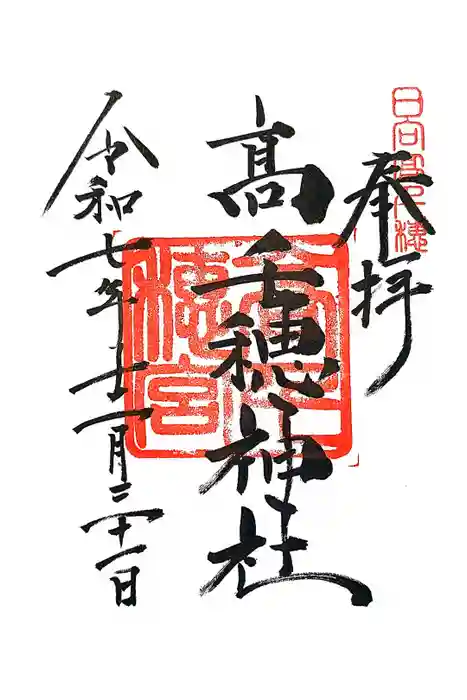 日向高千穂
奉拝
高千穂神社
高千穂宮
令和七年十二月三十一日